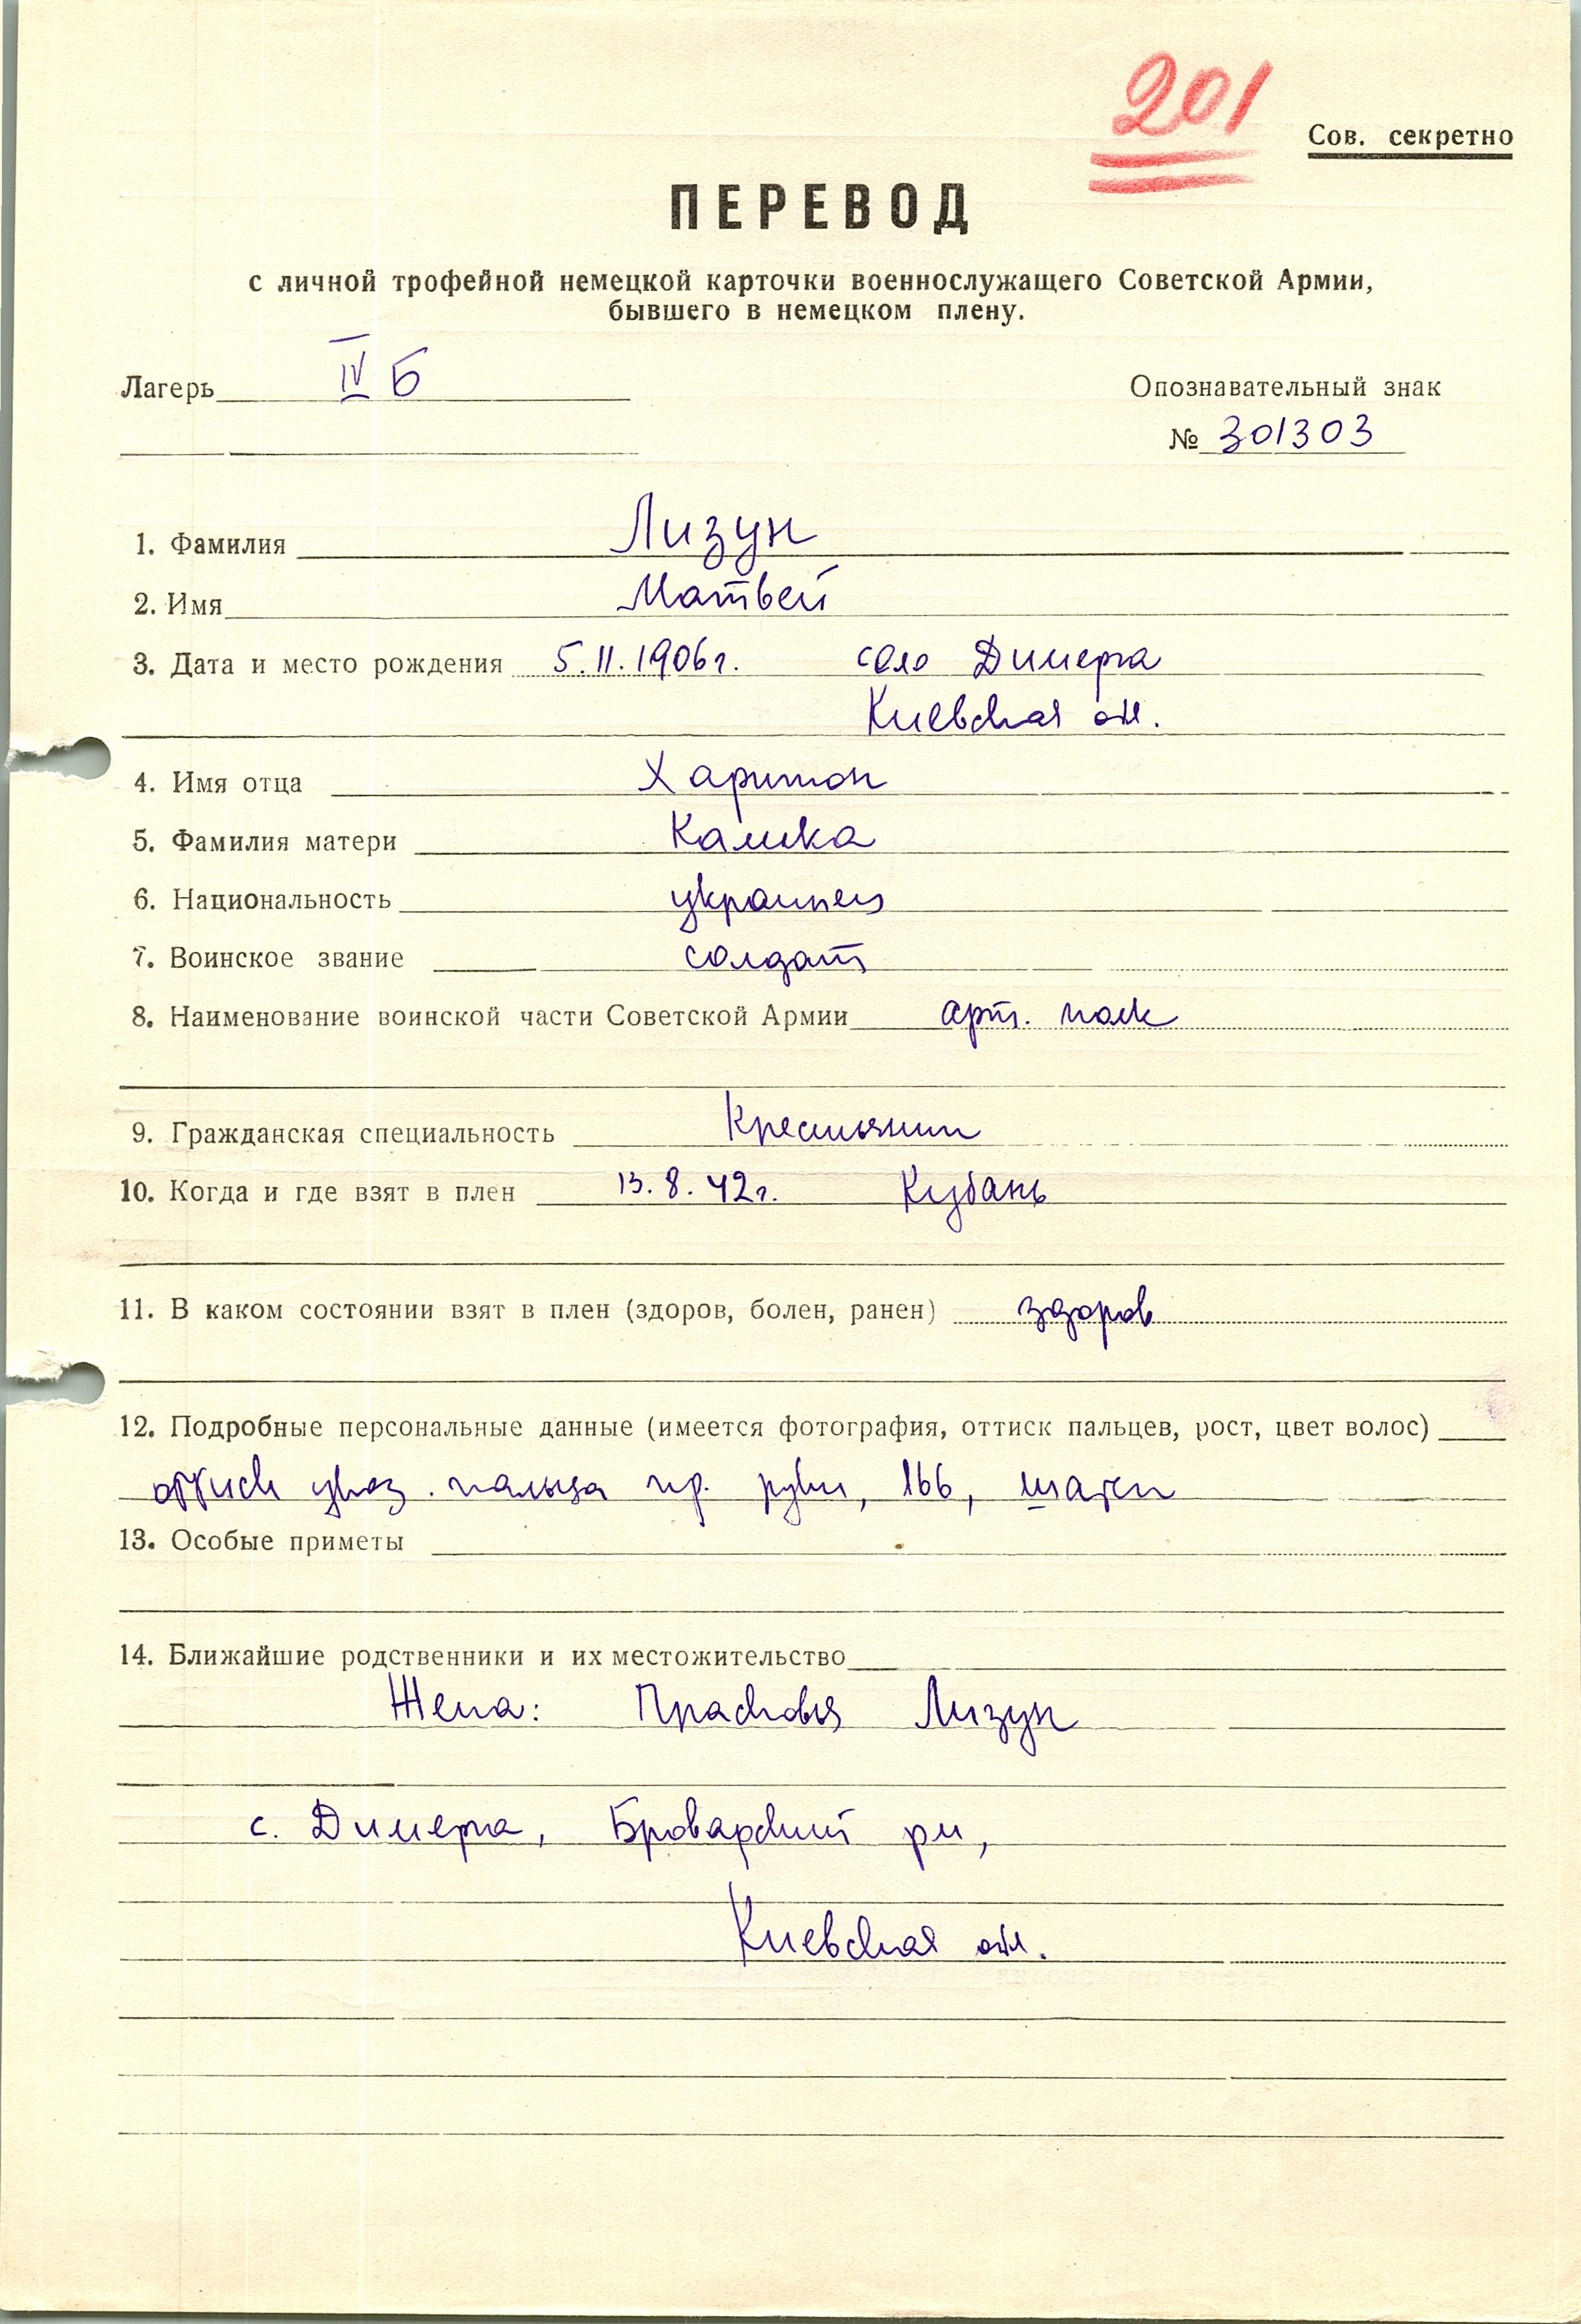 201
Сов. секретно
ПЕРЕВОД
с личной трофейной немецкой карточки военнослужащего Советской Армии,
бывшего в немецком плену.
Лагерь IV Б
Опознавательный знак
№ 301303
1. Фамилия Лизун
2. Имя Матвей
3. Дата и место рождения 5.11.1906г. село Димерка
Киевская обл.
4. Имя отца Харитон
5. Фамилия матери
6. Национальность украинец
7. Воинское звание солдат
8. Наименование воинской части Советской Армии арт. полк
9. Гражданская специальность Крестьянин
10. Когда и где взят в плен 13.8.42г. Кубань
11. В каком состоянии взят в плен (здоров, болен, ранен) здоров
12. Подробные персональные данные (имеется фотография, оттиск пальцев, рост, цвет волос)
оттиск указ. пальца пр. руки, 166, шатен
13. Особые приметы
14. Ближайшие родственники и их местожительство
Жена: Прасковья Лизун
с. Димерка, Броварский рн,
Киевская обл.